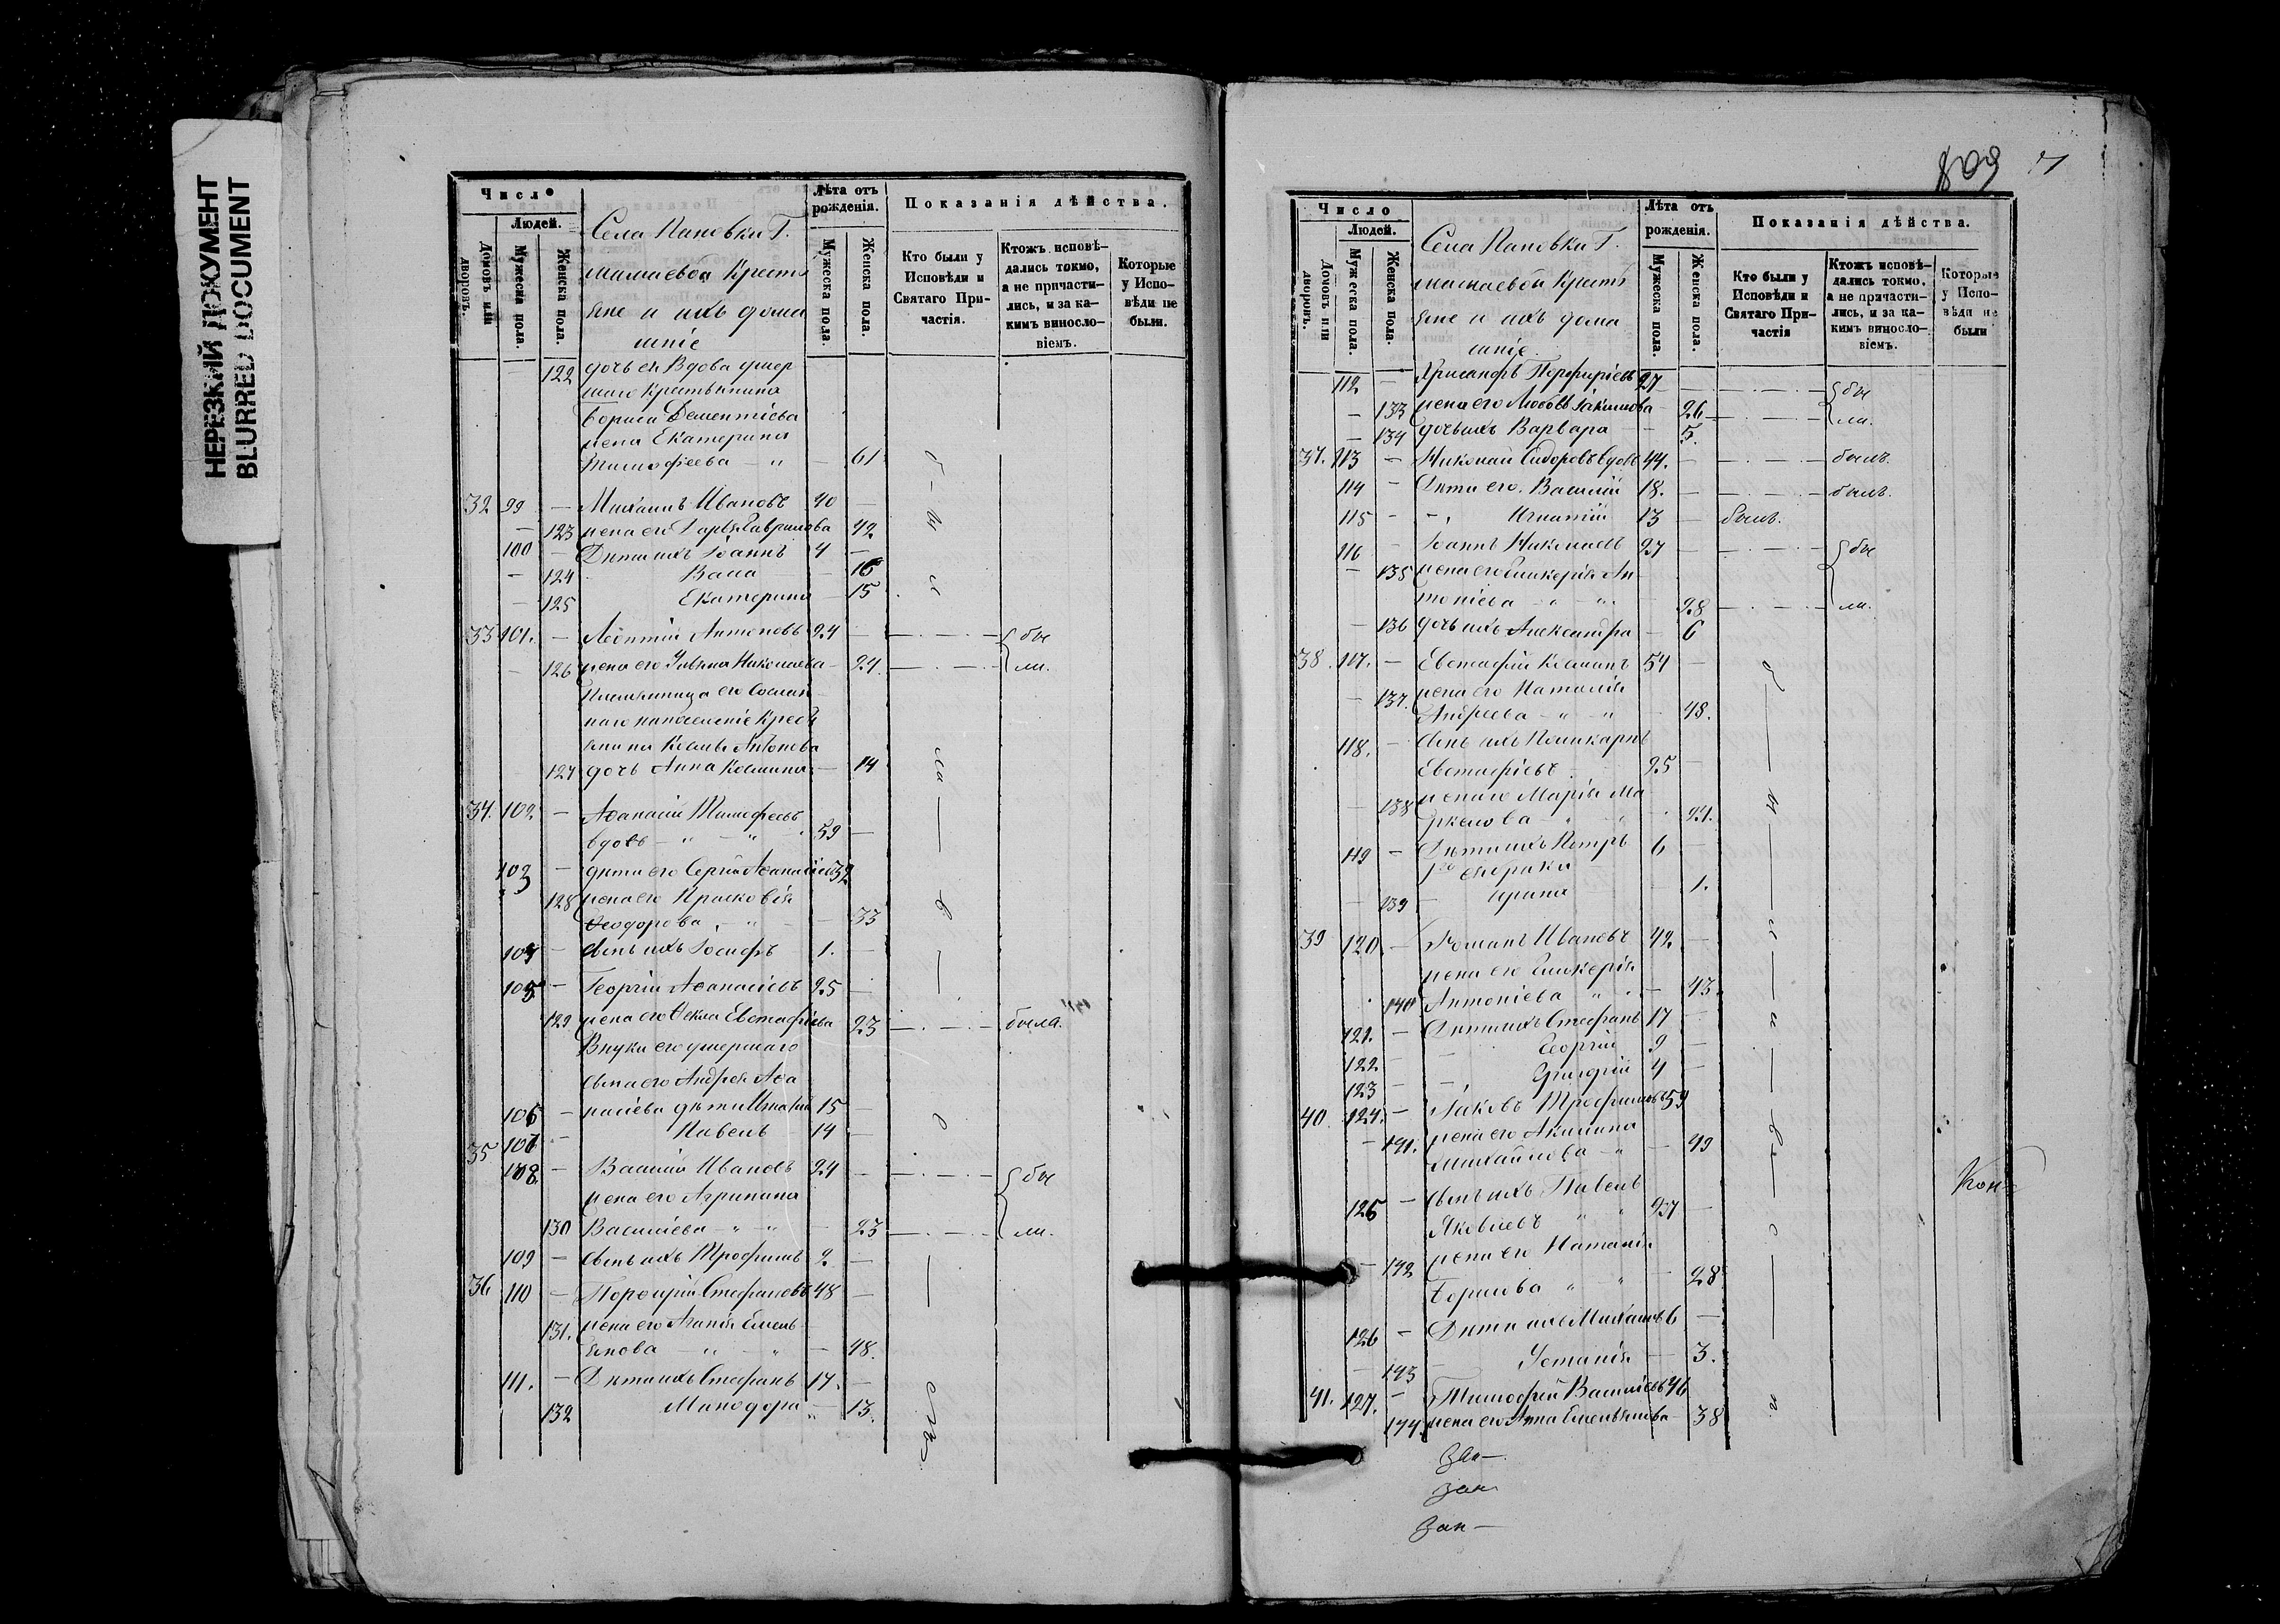 НЕРЕЗКИЙ ДОКУМЕНТ
BLURRED DOCUMENT
Число
Людей.
Домовъ или дворовъ.
Мужеска пола.
Женска пола.
Села Пановки Г.
Крестьяне и ихъ домашніе
Лѣта отъ рожденія.
Мужеска пола.
Женска пола.
Показанія дѣйства.
Кто были у Исповѣди и Святаго Причастія.
Ктожъ исповѣдались токмо, а не причастились, и за какимъ винословіемъ.
Которые у Исповѣди не были.
122 дочь ея Вдова умершаго крестьянина
Бориса Дементіева
жена Екатерина
Тимофеева — 61
32 99 — Михаилъ Ивановъ 40 —
— 123 жена его Дарья Гаврилова 42
100 — Дѣти ихъ Іоаннъ 4 —
— 124 Васса — 16
— 125 Екатерина — 15
33 101. — Леонтій Антоновъ 24 — бы
— 126 жена его Ульяна Николаева — 24. ли.
Племянница его
Антонова
127 дочь Анна Космина — 14
34. 102. — Аѳанасій Тимофеевъ
вдовъ 59 —
103 — дѣти его Сергій Аѳанасіевъ 32
128 жена его Прасковія
Ѳеодорова — 33
104 — сынъ ихъ Іосифъ 1. —
105 — Георгій Аѳанасіевъ 25 —
129 жена его Ѳекла Евстафіева 23 — была.
Внуки его умершаго
сына его Андрея Аѳа
насіева дѣти Игнатій 15 —
106
107 — Павелъ 14 —
35 108. — Василій Ивановъ 24 — бы
жена его Агрипина
130 Василіева — 23 ли.
109 — сынъ ихъ Трофимъ 2 —
36 110 — Порфирій Стефановъ 48 —
131. жена его Агапія Емель
янова — 48.
111. — Дѣти ихъ Стефанъ 17. —
132 Минодора — 13.
809
Число
Людей.
Домовъ или дворовъ.
Мужеска пола.
Женска пола.
Села Пановки Г.
Крестьяне и ихъ домашніе.
Лѣта отъ рожденія.
Мужеска пола.
Женска пола.
Показанія дѣйства.
Кто были у Исповѣди и Святаго Причастія
Ктожъ исповѣдались токмо, а не причастились, и за какимъ винословіемъ.
Которые у Исповѣди не были
112 — Хрисанфъ Порфиріевъ 27 — бы
— 133 жена его Любовь Іакимова — 26 ли.
— 134 дочь ихъ Варвара — 5.
37. 113 — Николай Сидоровъ вдовъ 44. — былъ.
114 — Дѣти его. Василій 18. — былъ.
115 — Игнатій 13 — былъ.
116 — Іоаннъ Николаевъ 27 — бы
— 135 жена его Гликерія Ан
тоніева 28 ли.
— 136 дочь ихъ Александра — 6
38. 117. — Евстафій Касьянъ 54 —
— 137. жена его Наталія
Андреева — 48.
118. — сынъ ихъ Поликарпъ
Евстафіевъ 25 —
— 138 жена его Марія Ма
ркелова 24.
119 — Дѣти ихъ Петръ 6 —
— 139 Ирина 1.
39 120. — Романъ Ивановъ 42. —
жена его Гликерія
140 Антоніева — 43.
121. — Дѣти ихъ Стефанъ 17 —
122 — Георгій 9 —
123 — Григорій 4 —
40. 124. — Іаковъ Трофимовъ 59
— 141. жена его Акилина
Михайлова — 49
125 — сынъ ихъ Павелъ
Яковлевъ 27 —
— 142 жена его Наталія
Борисова — 28
126 — Дѣти ихъ Михаилъ 6 —
— 143 Устинія — 3.
41. 127. — Тимофей Василіевъ 46
144. жена его Анна Емельянова — 38